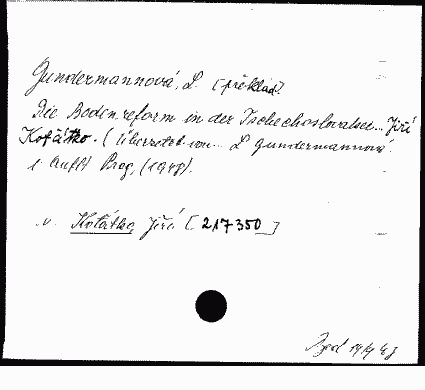 Gundermannová, L. [překlad.]
Die Bodenreform in der Tschechoslovakei... Jiří
Koťátko. (Überzetzt von... L. Gundermannová
1. Aufl.) Prag, (1948).
v. Koťátko Jiří [217350]